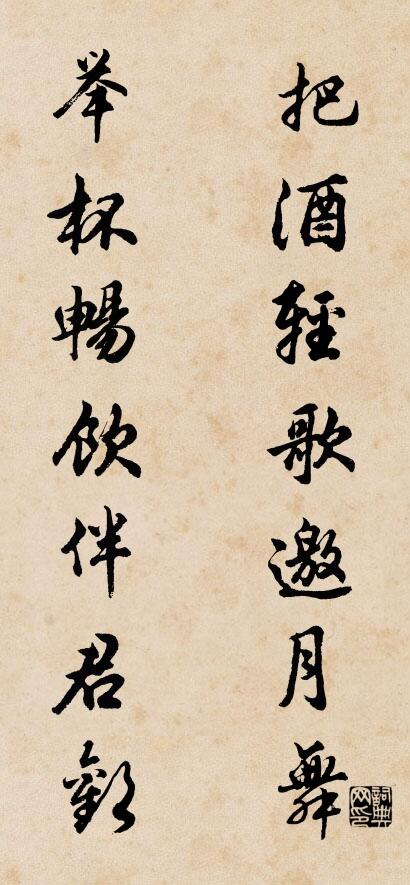 把酒輕歌邀月舞
举杯暢飲伴君歡
詞典网印